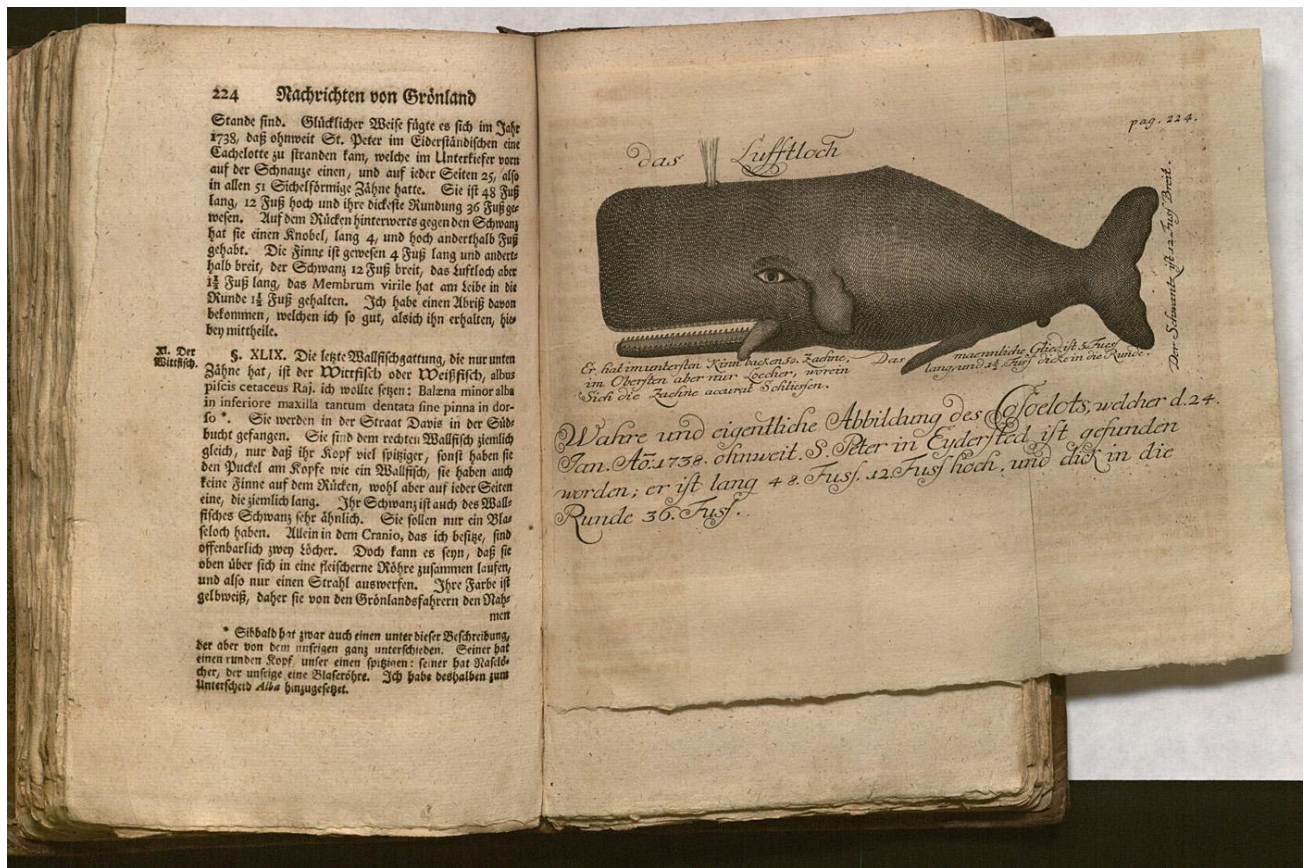 224 Nachrichten von Grönland
Stande sind. Glücklicher Weise fügte es sich im Jahr
1738, daß ohnweit St. Peter im Eiderständischen eine
Cachelotte zu stranden kam, welche im Unterkiefer vorn
auf der Schnauze einen, und auf ieder Seiten 25, also
in allen 51 Sichelförmige Zähne hatte. Sie ist 48 Fuß
lang, 12 Fuß hoch und ihre dickeste Rundung 36 Fuß ge-
wesen. Auf dem Rücken hinterwerts gegen den Schwanz
hat sie einen Knobel, lang 4, und hoch anderthalb Fuß
gehabt. Die Finne ist gewesen 4 Fuß lang und andert-
halb breit, der Schwanz 12 Fuß breit, das Luftloch aber
1½ Fuß lang, das Membrum virile hat am Leibe in die
Runde 1½ Fuß gehalten. Ich habe einen Abriß davon
bekommen, welchen ich so gut, als ich ihn erhalten, hie-
bey mittheile.
XI. Der
Wittfisch.
§. XLIX. Die letzte Wallfischgattung, die nur unten
Zähne hat, ist der Wittfisch oder Weißfisch, albus
piscis cetaceus Raj. ich wollte setzen: Balæna minor alba
in inferiore maxilla tantum dentata sine pinna in dor-
so *. Sie werden in der Straat Davis in der Süd-
bucht gefangen. Sie sind dem rechten Wallfisch ziemlich
gleich, nur daß ihr Kopf viel spitziger, sonst haben sie
den Puckel am Kopfe wie ein Wallfisch, sie haben auch
keine Finne auf dem Rücken, wohl aber auf ieder Seiten
eine, die ziemlich lang. Ihr Schwanz ist auch des Wall-
fisches Schwanz sehr ähnlich. Sie sollen nur ein Bla-
seloch haben. Allein in dem Cranio, das ich besitze, sind
offenbarlich zwey Löcher. Doch kann es seyn, daß sie
oben über sich in eine fleischerne Röhre zusammen laufen,
und also nur einen Strahl auswerfen. Ihre Farbe ist
gelbweiß, daher sie von den Grönlandsfahrern den Nah-
men
* Sibbald hat zwar auch einen unter dieser Beschreibung,
der aber von dem unsrigen ganz unterschieden. Seiner hat
einen runden Kopf, unser einen spitzigen: seiner hat Naselö-
cher, der unsrige eine Blaseröhre. Ich habe deshalben zum
Unterscheid Alba hinzugesetzet.
pag. 224.
das Lufftloch
Der Schwantz ist 12 Fuss Breit.
Er hat im untersten Kinn backen 50. Zaehne,
im Obersten aber nur Loecher, worein
Sich die Zaehne accurat Schliessen.
Das maennliche Glied ist 5 Fuess
lang, und 1½ Fuss dicke in die Runde.
Wahre und eigentliche Abbildung des Cosoelots, welcher d. 24.
Jan. Aō: 1738. ohnweit. S. Peter in Eydersted ist gefunden
worden; er ist lang 48. Fuss. 12. Fuss hoch, und dick in die
Runde 36. Fuss.